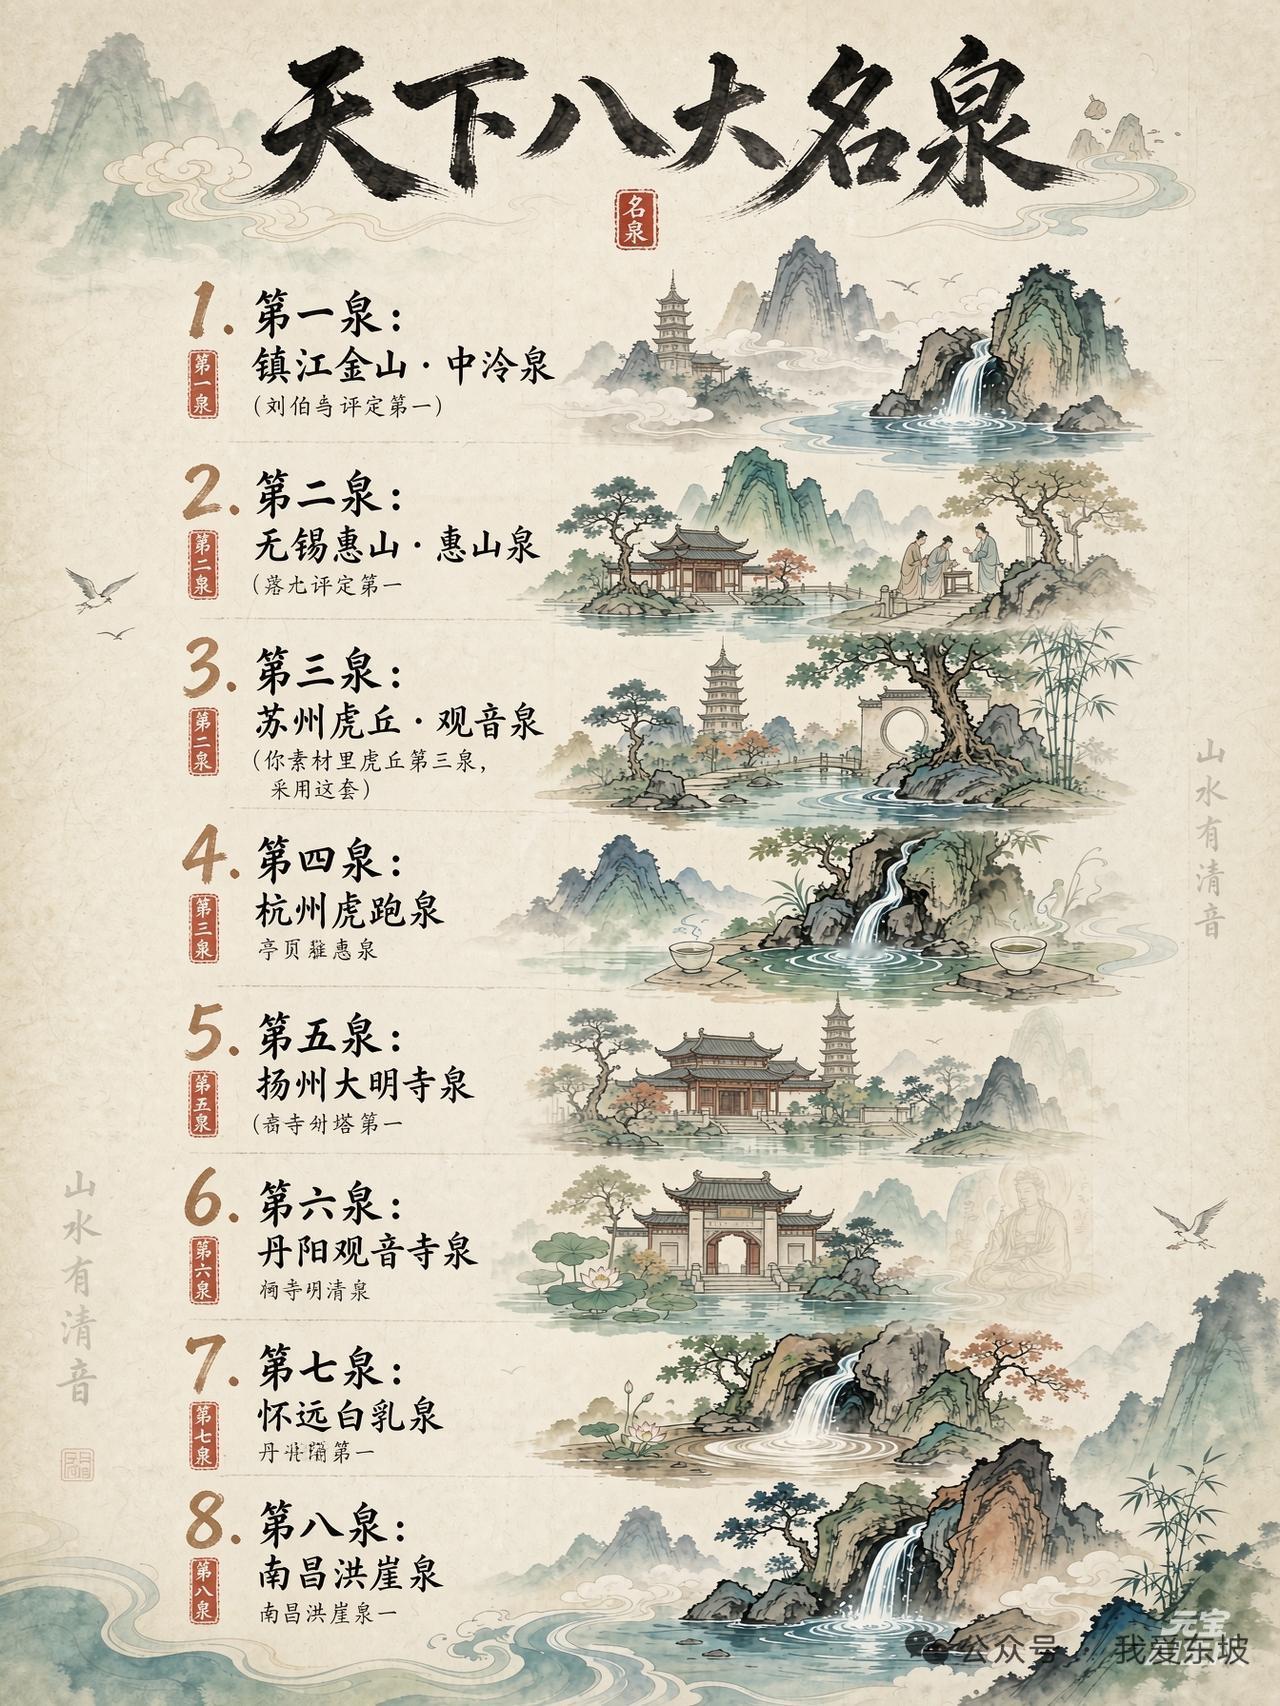 天下八大名泉
名泉
1. 第一泉：
第一泉
镇江金山·中泠泉
(刘伯刍评定第一)
2. 第二泉：
第二泉
无锡惠山·惠山泉
评定第一
3. 第三泉：
第二泉
苏州虎丘·观音泉
(你素材里虎丘第三泉，
采用这套)
4. 第四泉：
第三泉
杭州虎跑泉
惠泉
5. 第五泉：
第五泉
扬州大明寺泉
塔第一
6. 第六泉：
第六泉
丹阳观音寺泉
寺明清泉
7. 第七泉：
第七泉
怀远白乳泉
第一
8. 第八泉：
第八泉
南昌洪崖泉
南昌洪崖泉一
山水有清音
山水有清音
元宝
公众号 · 我爱东坡